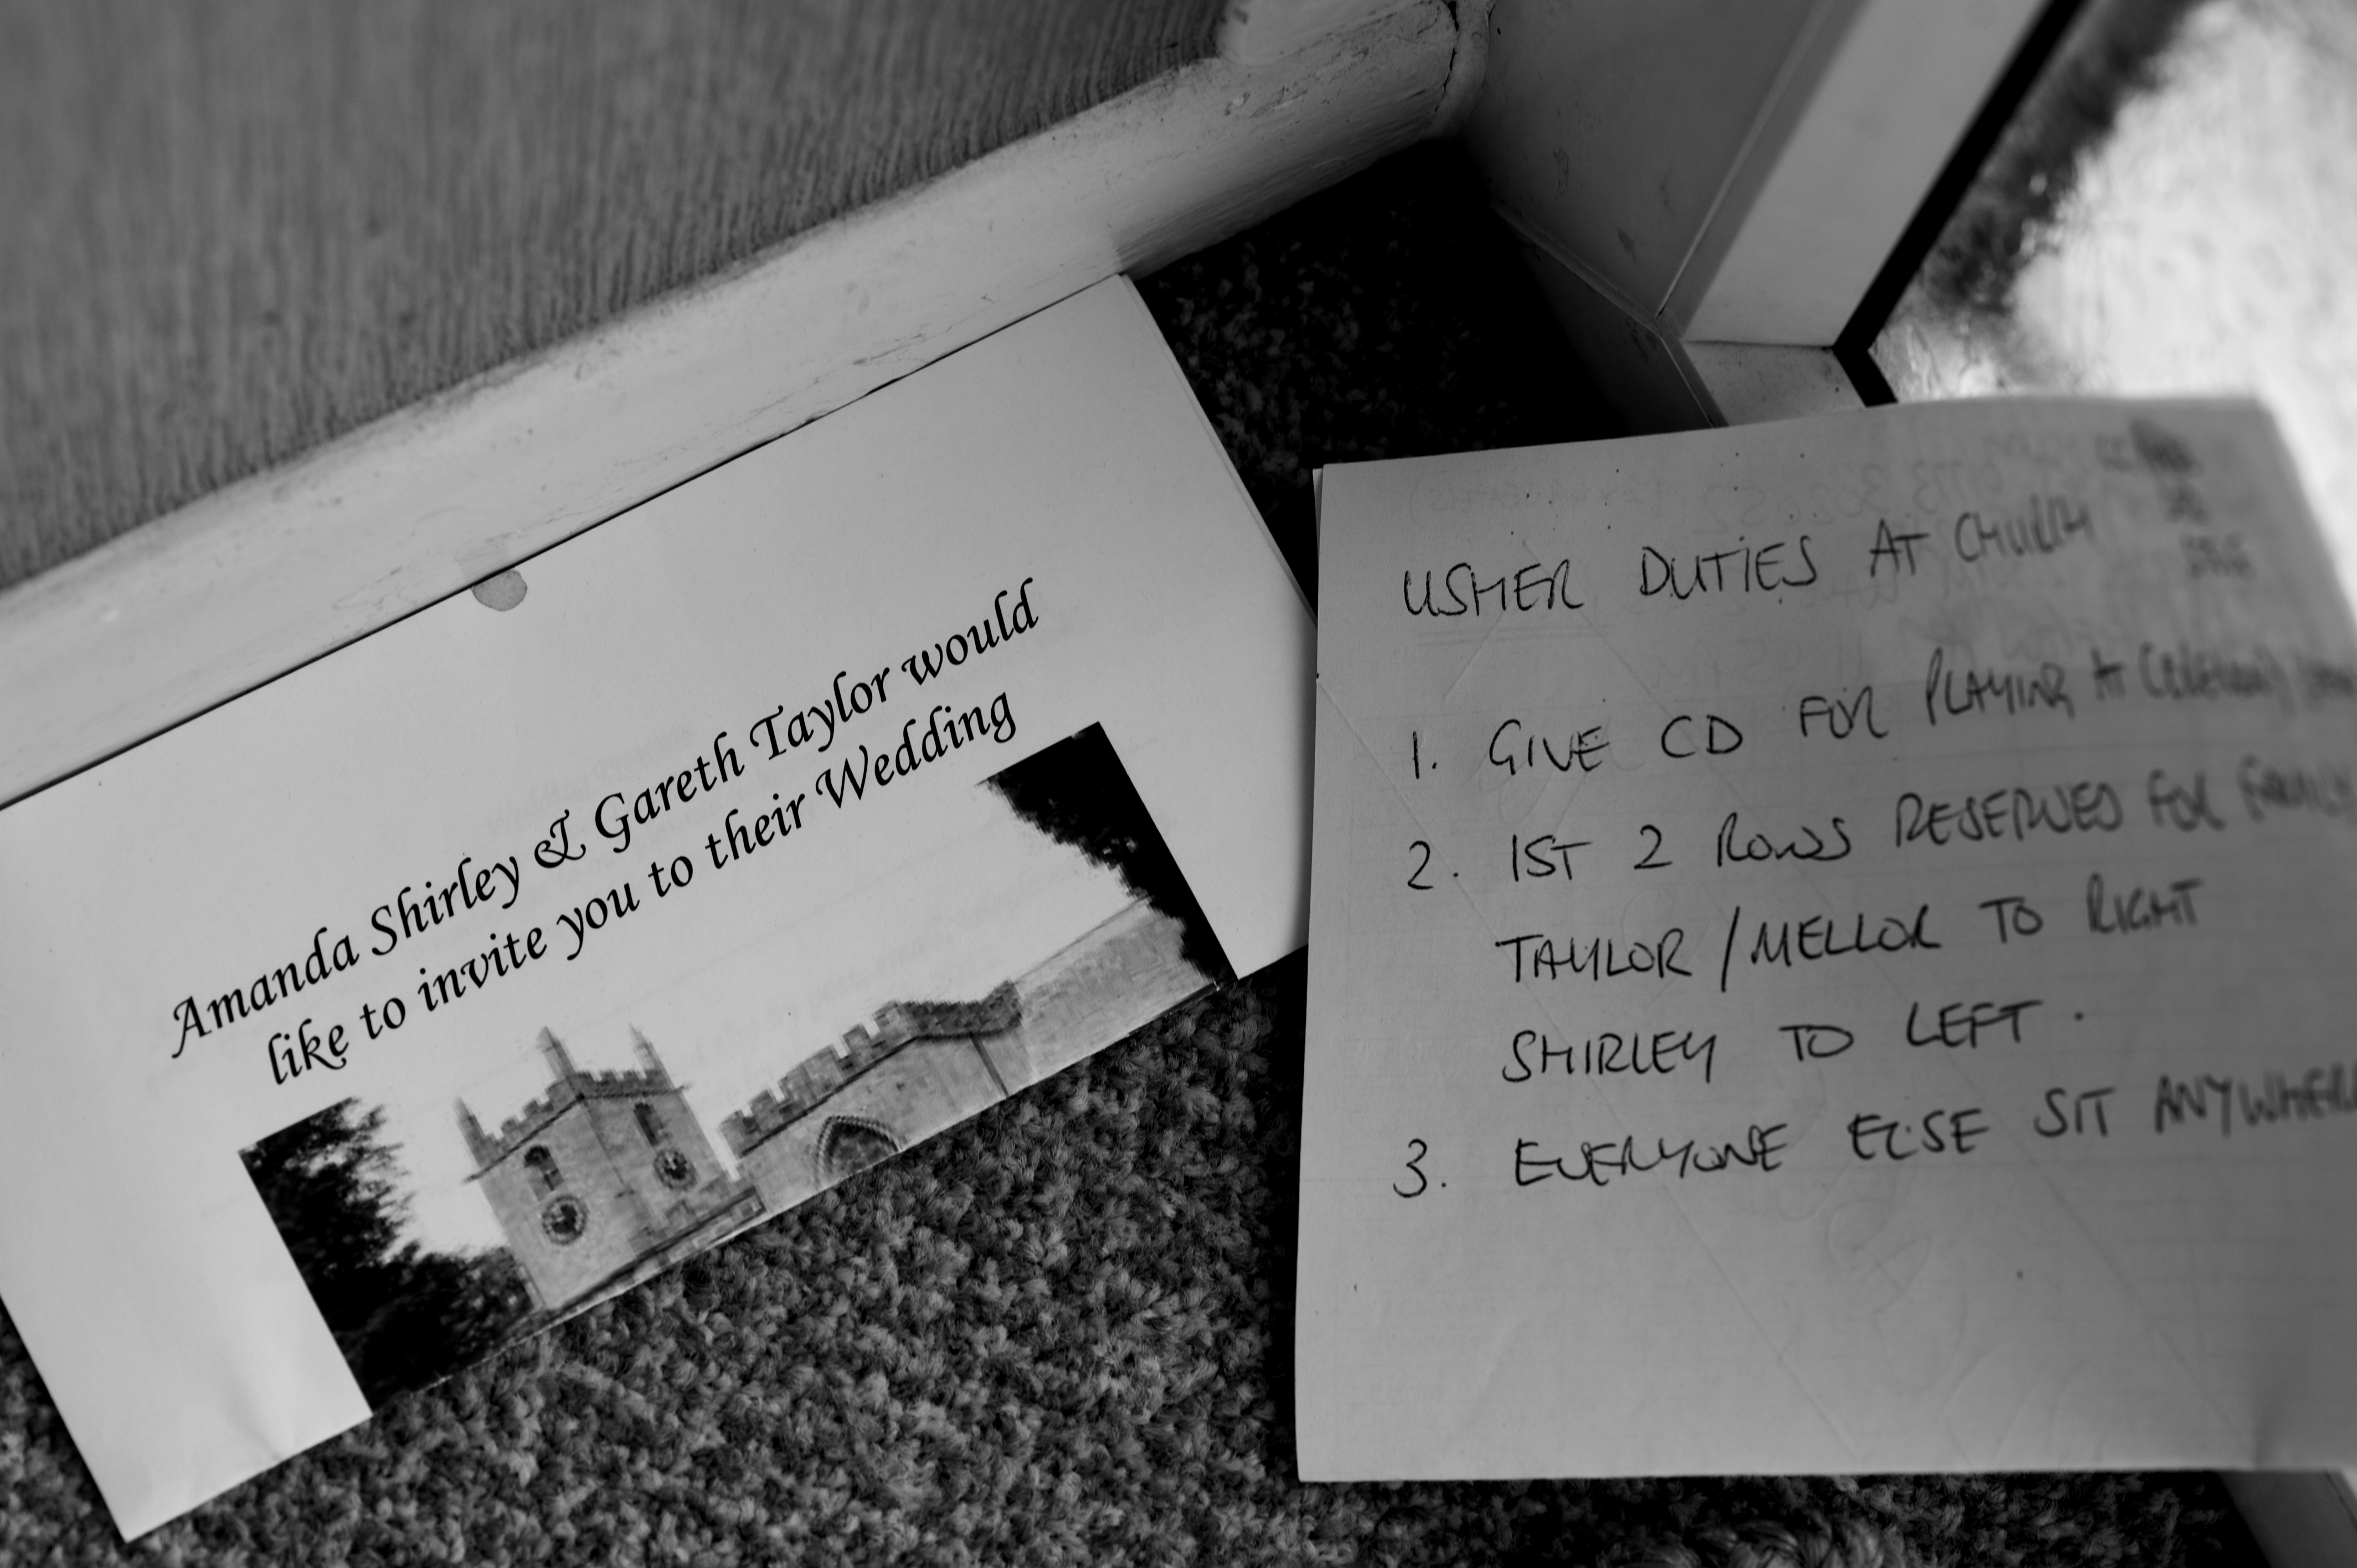 Amanda Shirley & Gareth Taylor would
like to invite you to their Wedding
USHER DUTIES AT CHURCH
1. GIVE CD FOR PLAYING AT
2. 1ST 2 ROWS RESERVED FOR FAMILY
TAYLOR / MELLOR TO RIGHT
SHIRLEY TO LEFT.
3. EVERYONE ELSE SIT ANYWHERE